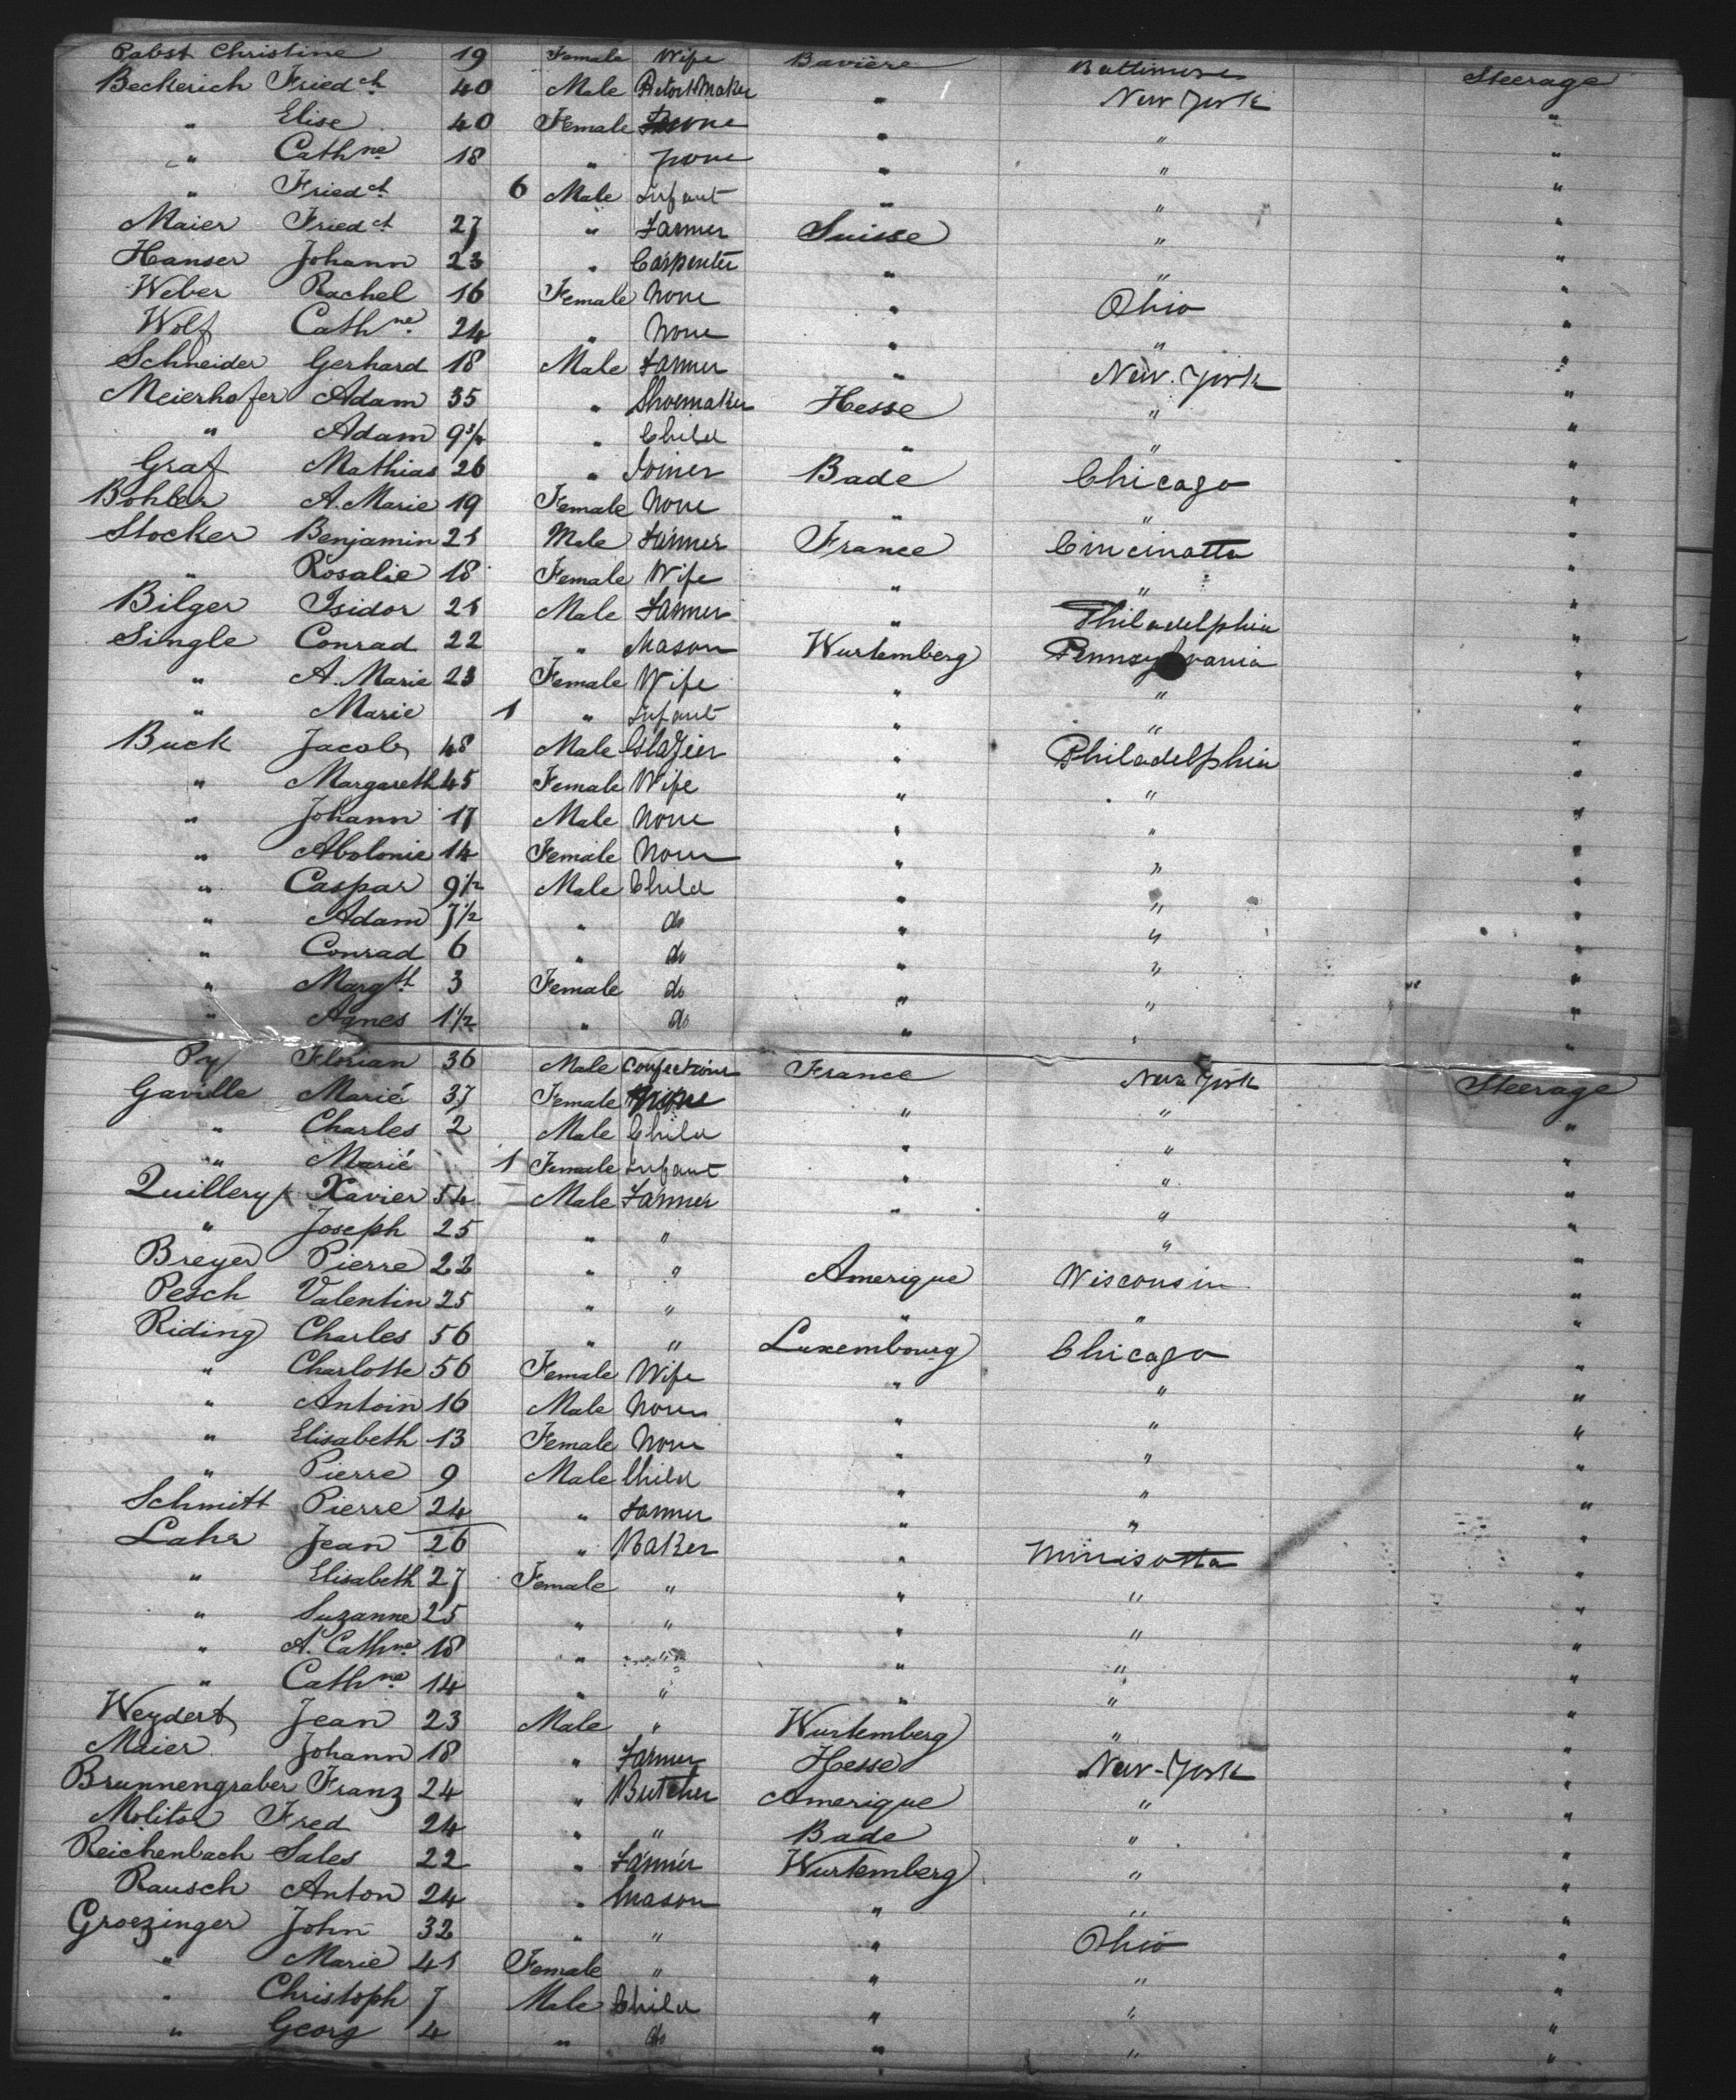 Pabst Christine 19 Female Wife Bavière Baltimore Steerage
Beckerich Friedch 40 Male " New York "
" Elise 40 Female None " " "
" Cathne 18 " None " " "
" Friedch 6 Male Infant " " "
Maier Friedch 27 " Farmer Suisse " "
Hanser Johann 23 " Carpenter " " "
Weber Rachel 16 Female None " Ohio "
Wolf Cathne 24 " None " " "
Schneider Gerhard 18 Male Farmer " New-York "
Meierhofer Adam 35 " Shoemaker Hesse " "
" Adam 9 3/4 " Child " " "
Graf Mathias 26 " Joiner Bade Chicago "
Bohler A. Marie 19 Female None " " "
Stocker Benjamin 25 Male Farmer France Cincinatta "
" Rosalie 18 Female Wife " " "
Bilger Isidor 25 Male Farmer " Philadelphia "
Single Conrad 22 " Mason Wurtemberg Pennsylvania "
" A. Marie 23 Female Wife " " "
" Marie 1 " Infant " " "
Buck Jacob 48 Male Glazier " Philadelphia "
" Margareth 45 Female Wife " " "
" Johann 17 Male None " " "
" Abolonie 14 Female None " " "
" Caspar 9 1/2 Male Child " " "
" Adam 7 1/2 " do " " "
" Conrad 6 " do " " "
" Margth 3 Female do " " "
" Agnes 1 1/2 " do " " "
Py Florian 36 Male Confectioner France New York Steerage
Gaville Marie 37 Female " " "
" Charles 2 Male Child " " "
" Marie 1 Female Infant " " "
Quillery Xavier 54 Male Farmer " " "
" Joseph 25 " " " " "
Breyer Pierre 22 " " Amerique Wisconsin "
Pesch Valentin 25 " " " " "
Riding Charles 56 " " Luxembourg Chicago "
" Charlotte 56 Female Wife " " "
" Antoin 16 Male None " " "
" Elisabeth 13 Female None " " "
" Pierre 9 Male Child " " "
Schmitt Pierre 24 " Farmer " " "
Lahr Jean 26 " Baker " Minisotta "
" Elisabeth 27 Female " " " "
" Suzanne 25 " " " " "
" A. Cathne 18 " " " " "
" Cathne 14 " " " " "
Weydert Jean 23 Male " Wurtemberg " "
Maier Johann 18 " Farmer Hesse New-York "
Brunnengraber Franz 24 " Butcher Amerique " "
Molitor Fred 24 " " Bade " "
Reichenbach Sales 22 " Farmer Wurtemberg " "
Rausch Anton 24 " Mason " " "
Groezinger John 32 " " " Ohio "
" Marie 41 Female " " " "
" Christoph 7 Male Child " " "
" Georg 4 " do " " "